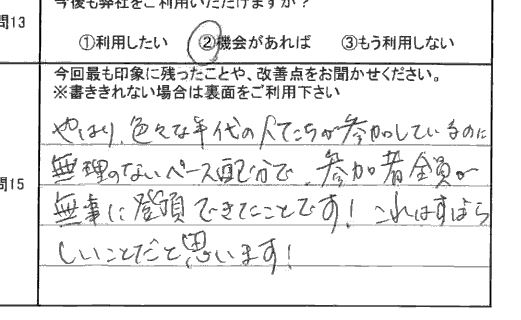 今後も弊社をご利用いただけますか？
問13
①利用したい ②機会があれば ③もう利用しない
今回最も印象に残ったことや、改善点をお聞かせください。
※書ききれない場合は裏面をご利用下さい
問15
やはり、色々な年代の人たちが参加しているのに
無理のないペース配分で、参加者全員が
無事に登頂できたことです！これはすばら
しいことだと思います！